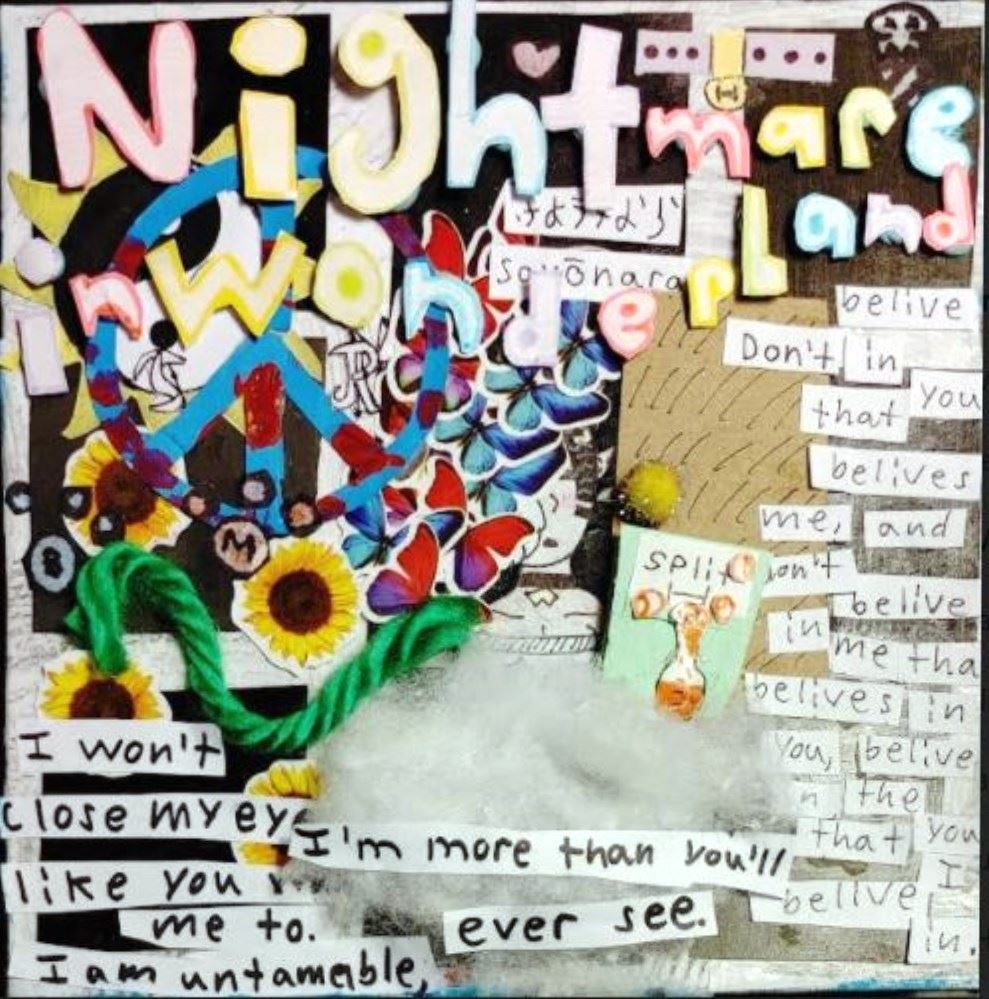 Nightmare
in wonderland
belive
Don't in
that you
belives
me, and
belive
in me
belives in
You, belive
the
that you
belive I
in.
split
M
B
I won't
close my
like you
me to.
I am untamable,
I'm more than you'll
ever see.